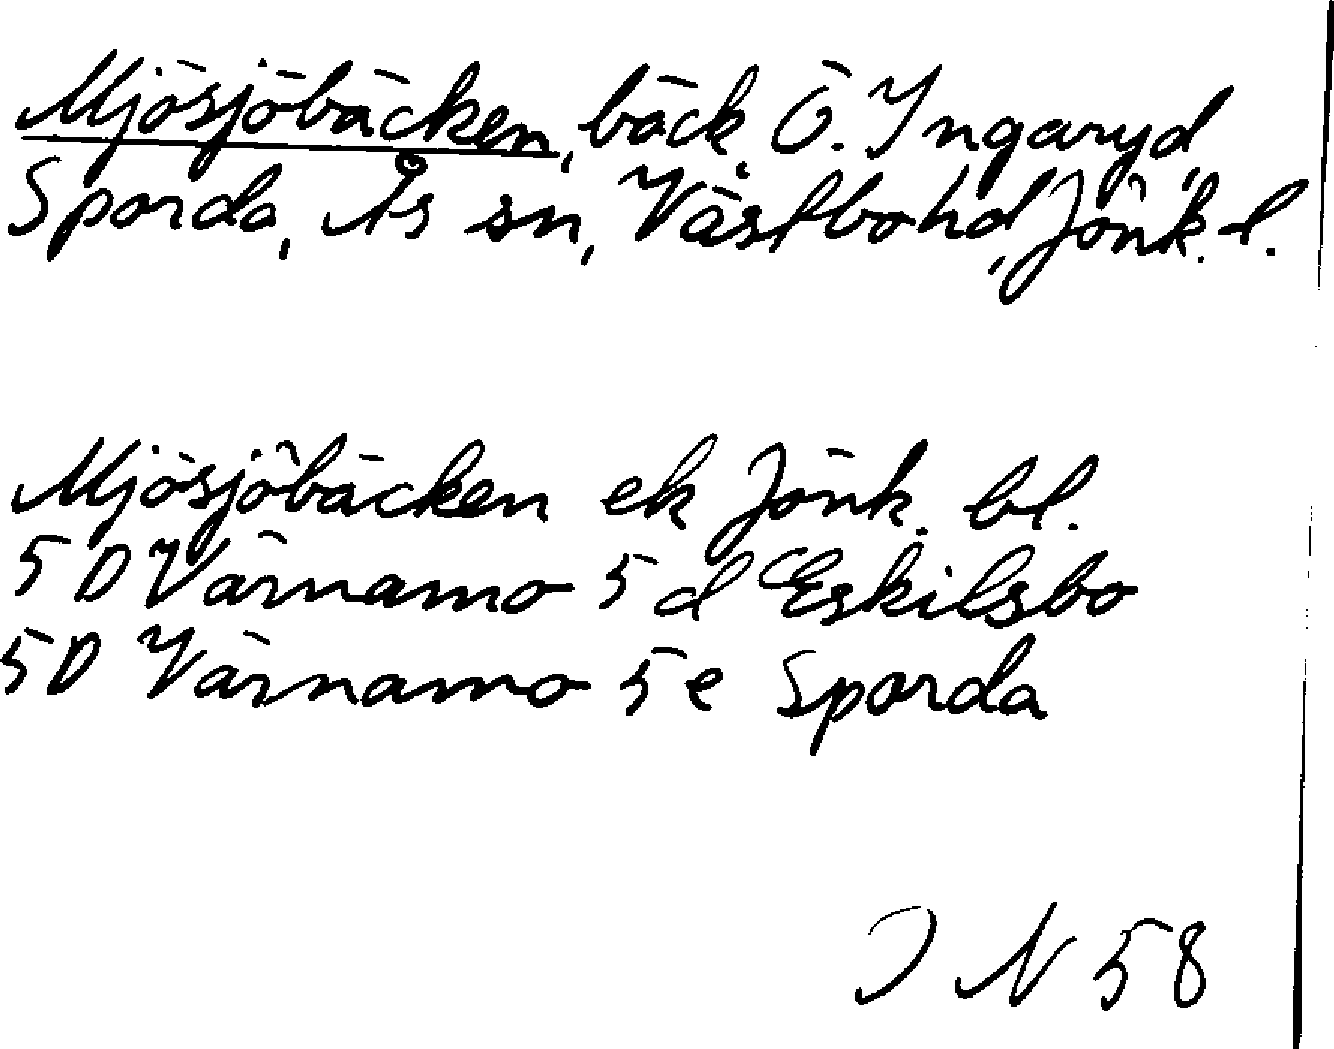 Mjösjöbäcken, bäck. Ö. Ingaryd,
Sporda, Ås sn, Västbo hd, Jönk. l.
Mjösjöbäcken ek Jönk. bl.
5D Värnamo 5d Eskilsbo
5D Värnamo 5e Sporda
J N 58